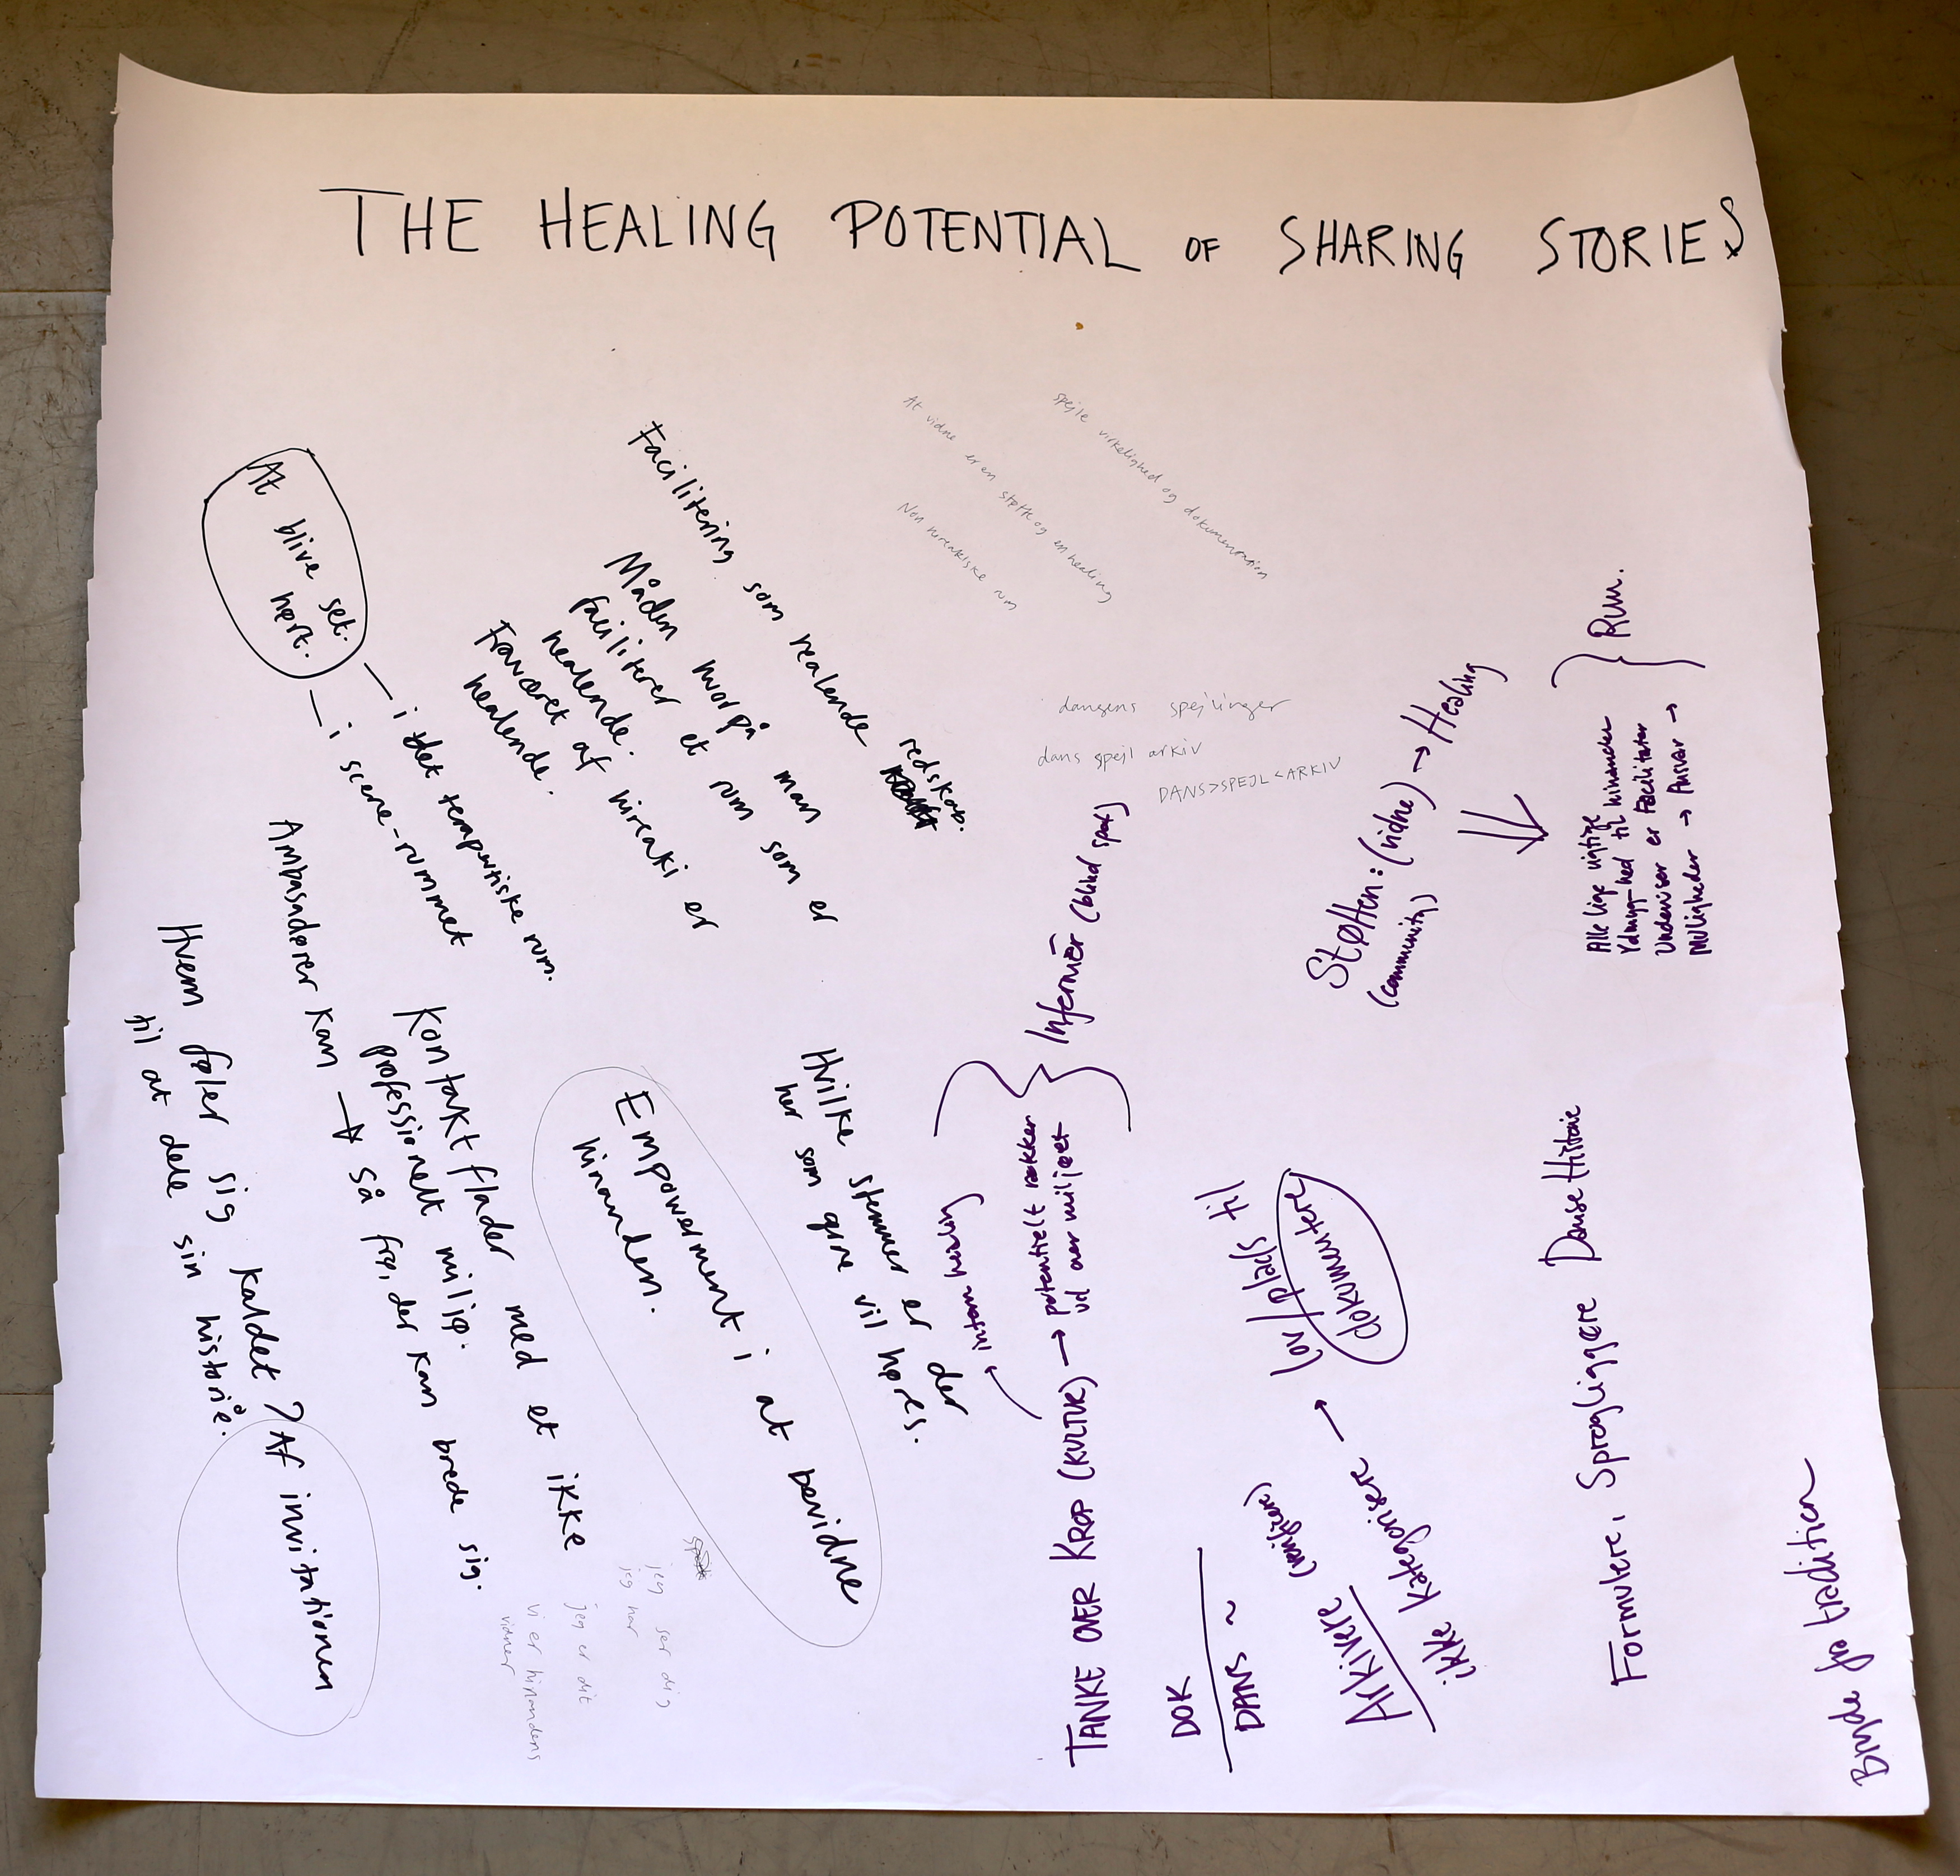 THE HEALING POTENTIAL OF SHARING STORIES
At blive set.
hørt.
– i det temporitiske rum.
– i scene-rummet
Facilitering som healende redskab.
Måden hvorpå man
faciliterer et rum som er
healende.
Fraværet af hireaki er
healende.
At vidne er en støtte og en healing
spejle virkelighed og dokumentation
Non hireakiske rum
dansens spejlinger
dans spejl arkiv
DANS>SPEJL<ARKIV
Ambasadører kan → så frø, der kan brede sig.
Kontakt flader med et ikke
professionelt miljø.
Hvem føler sig kaldet? Af invitationen
til at dele sin historie.
Empowerment i at bevidne
hinanden.
Hvilke stemmer er der
her som gerne vil høres.
jeg ser dig
jeg hør
jeg er dit
vi er hinandens
vidner
TANKE OVER KROP (KULTUR) → potentielt rækker
ud over miljøet
intern healing
Infermér (blind spot)
DOK
DANS ~
Arkivere
ikke kategorisere → lov/plads til
dokumentere
Støtten: (vidne) → Healing
(community)
Alle lige vigtige
Ydmyg-hed til hinanden
Underviser er Facilitator
Muligheder → Ansvar →
Rum.
Formulere, Sprogliggøre Danse Historie
Bryde fra tradition